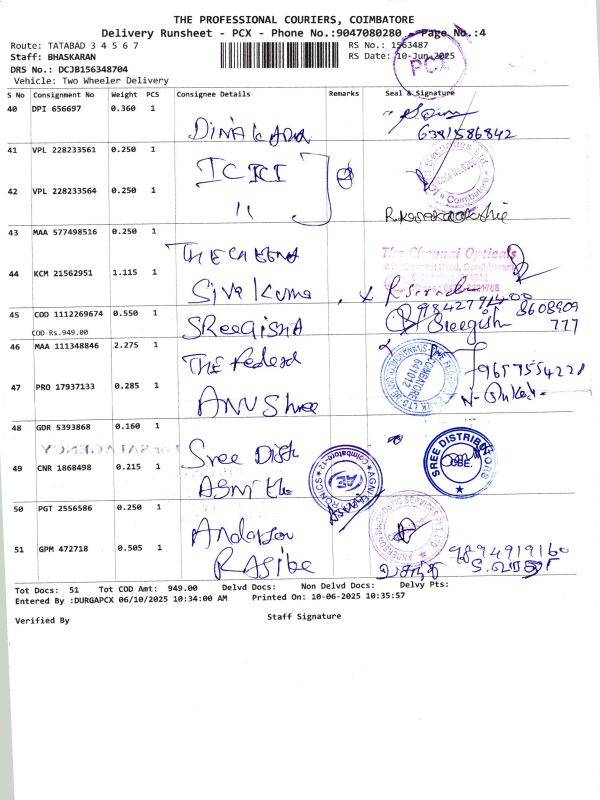 THE PROFESSIONAL COURIERS, COIMBATORE
Delivery Runsheet - PCX - Phone No.:9047080280 - Page No.:4
Route: TATABAD 3 4 5 6 7
RS No.: 1563487
Staff: BHASKARAN
RS Date: 10-Jun-2025
DRS No.: DCJB156348704
Vehicle: Two Wheeler Delivery
PCX
S No Consignment No Weight PCS Consignee Details Remarks Seal & Signature
40 DPI 656697 0.360 1
DINAKARA
6381586842
41 VPL 228233561 0.250 1 ICICI
42 VPL 228233564 0.250 1 "
Coimbatore
43 MAA 577498516 0.250 1 THE CHENNA
The Chennai Opticals
44 KCM 21562951 1.115 1 Siva Kuma
45 COD 1112269674 0.550 1 SReegisha
COD Rs.949.00
Sreegish 8608909
777
46 MAA 111348846 2.275 1 THE Federal
COIMBATORE
641012
9657554228
47 PRO 17937133 0.285 1 ANUShree
48 GDR 5393868 0.160 1 Sree Dist
SREE DISTRIBUTORS
CBE.
49 CNR 1868498 0.215 1
Coimbatore-12
AE
50 PGT 2556586 0.250 1 Anderson
51 GPM 472718 0.505 1
9894919160
Tot Docs: 51 Tot COD Amt: 949.00 Delvd Docs: Non Delvd Docs: Delvy Pts:
Entered By :DURGAPCX 06/10/2025 10:34:00 AM Printed On: 10-06-2025 10:35:57
Staff Signature
Verified By